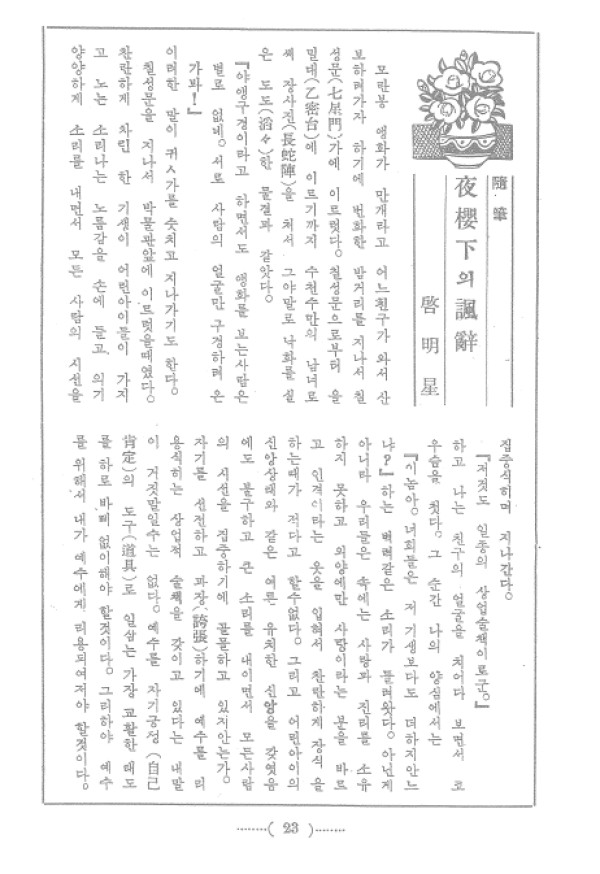 隨筆
夜櫻下의 諷辭
啓明星
모란봉 앵화가 만개라고 어느친구가 와서 산
보하려가자 하기에 번화한 밤거리를 지나서 칠
성문(七星門)가에 이르렷다。칠성문으로부터 을
밀대(乙密台)에 이르기까지 수천수만의 남녀로
써 장사진(長蛇陣)을 처서 그야말로 낙화를 실
은 도도(滔々)한 물결과 갓았다。
『야앵구경이라고 하면서도 앵화를 보는사람은
별로 없네。서로 사람의 얼굴만 구경하려 온
가봐!』
이러한 말이 귀ㅅ가를 슷치고 지나가기도 한다。
칠성문을 지나서 박물관앞에 이르럿을때였다。
찬란하게 차린 한 기생이 어린아이들이 가지
고 노는 소리나는 노름감을 손에 들고 의기
양양하게 소리를 내면서 모든 사람의 시선을
집중식히며 지나간다。
『저것도 일종의 상업술책이로군。』
하고 나는 친구의 얼굴을 치어다 보면서 코
우슴을 첫다。그 순간 나의 양심에서는
『이놈아。너희들은 저 기생보다도 더하지안느
냐?』하는 벽력같은 소리가 들려왓다。아닌게
아니라 우리들은 속에는 사랑과 진리를 소유
하지 못하고 외양에만 사랑이라는 분을 바르
고 인격이라는 옷을 입혀서 찬란하게 장식을
하는때가 적다고 할수없다。그리고 어린아이의
신앙상태와 같은 여른 유치한 신앙을 갖엿음
에도 불구하고 큰 소리를 내이면서 모든사람
의 시선을 집중하기에 골몰하고 있지안는가。
자기를 선전하고 과장(誇張)하기에 예수를 리
용식히는 상업적 술책을 갖이고 있다는 내말
이 거짓말일수는 없다。예수를 자기긍정(自己
肯定)의 도구(道具)로 일삼는 가장 교활한 태도
를 하로 바삐 없이해야 할것이다。그리하야 예수
를 위해서 내가 예수에게 리용되여저야 할것이다。
········( 23 )········